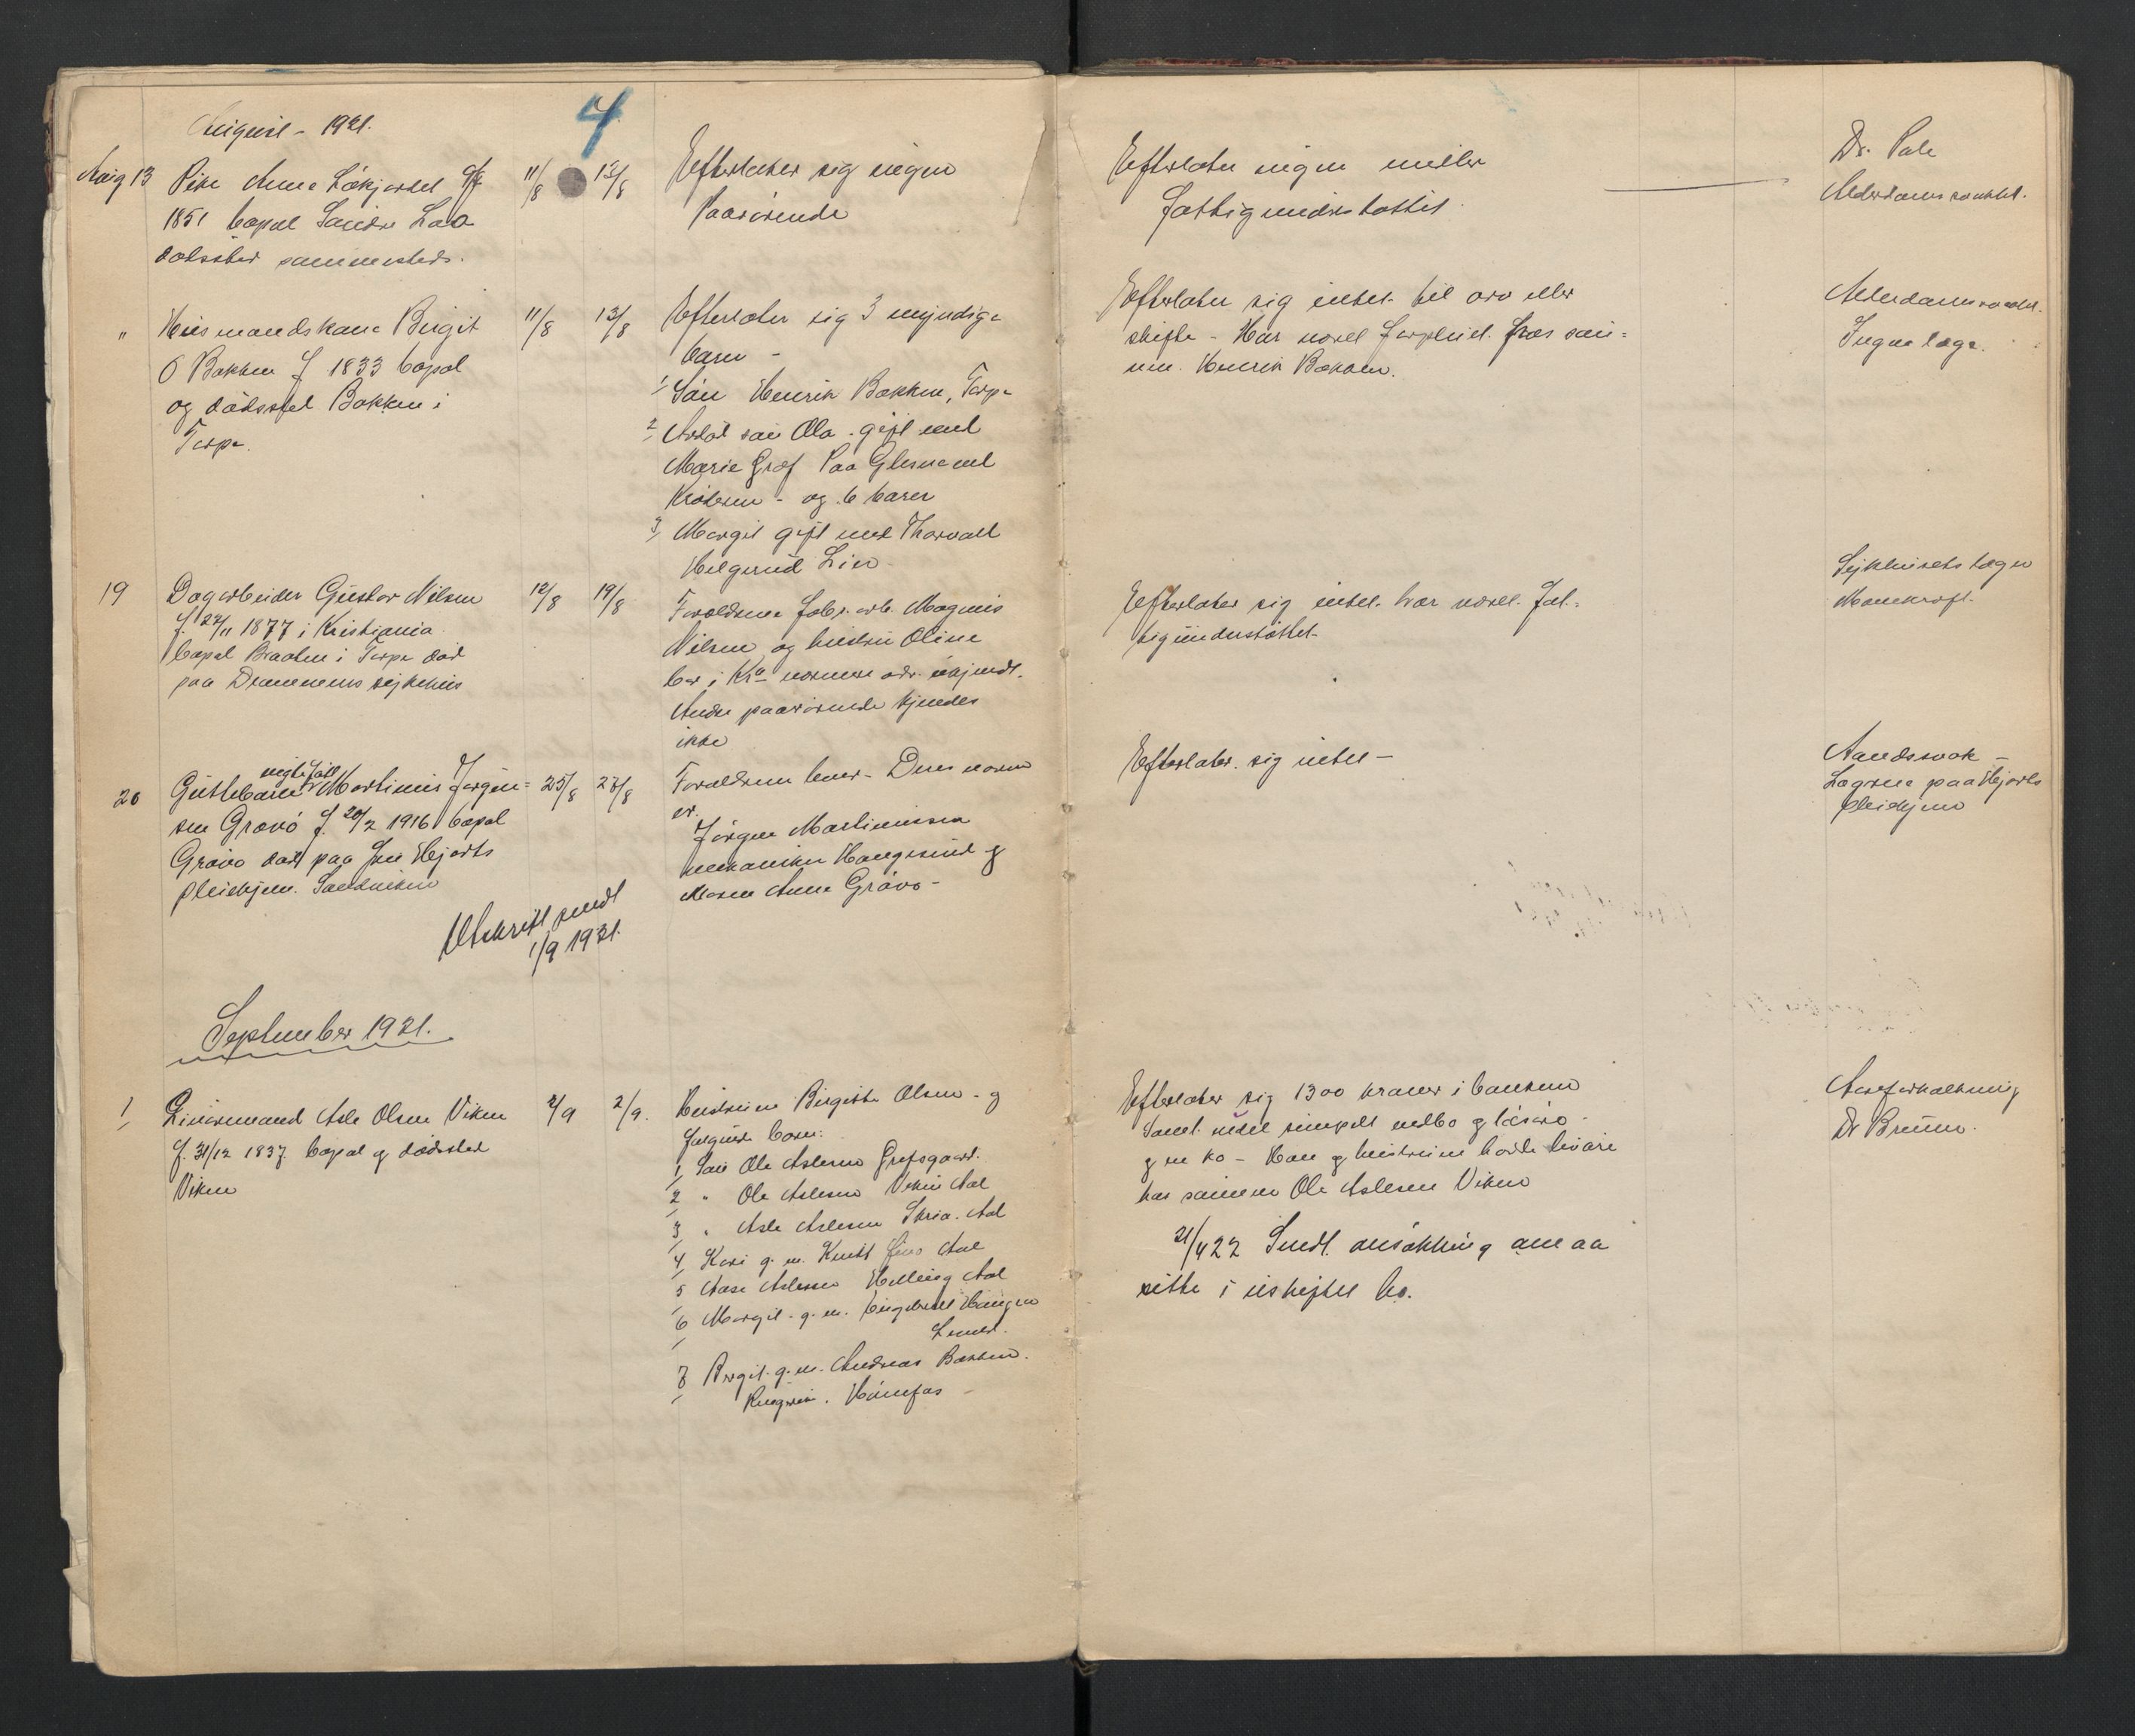 4
August - 1921.
Aug 13 Pike Anne Løkjordet f
1851 bopæl Søndre Laa
dødssted sammesteds.
11/8 13/8
Efterlater sig ingen
Paarørende
Efterlater ingen midler
Fattigunderstøttet.
Dr. Pale
Alderdomssvakhet.
" Husmandskone Birgit
O Bakken f 1833 bopæl
og dødssted Bakken i
Torpe.
11/8 13/8
Efterlater sig 3 myndige
barn -
1/ Søn Henrik Bakken, Torpe
2/ Avdød søn Ola - gift med
Marie Græf Paa Glesne ved
Krøderen - og 6 barn
3/ Margit gift med Thorvald
Helgerud Lier
Efterlater sig intet til arv eller
skifte - Har været forpleiet hos søn-
nen Henrik Bakken.
Alderdomssvakhet.
Ingen læge.
19 Dagarbeider Gustav Nilsen
f. 24/11 1877 i Kristiania
bopæl Braaten i Torpe død
paa Drammens sykehus
12/8 19/8
Forældrene fabr. arb. Magnus
Nilsen og hustru Oline
bor i Kr.a nærmere adr. ukjendt.
Andre paarørende kjendes
ikke
Efterlater sig intet. har været fat-
tigunderstøttet.
Sykehusets læge
Mavekræft.
20 Guttebarn uegte født Martinius Jørgen-
sen Grøvo f. 20/2 1916 bopæl
Grøvo død paa Hjorts
pleiehjem. Sandviken
25/8 27/8
Forældrene lever - Deres navn
er.
Jørgen Martiniussen
mekaniker Haugesund og
Moren Anne Grøvo -
Efterlater sig intet -
Aandssvak -
Lægene paa Hjorts
Pleiehjem
Utskrift sendt
1/9 1921.
September 1921.
1/ Livøremand Asle Olsen Viken
f. 31/12 1837 bopæl og dødssted
Viken
2/9 2/9.
Hustruen Birgitte Olsen - og
følgende barn:
1/ Søn Ole Aslesen Grefsgaard.
2/ " Ole Aslesen Viken Aal
3/ " Asle Aslesen Skria. Aal
4/ Kari g. m. Knut Aal
5/ Aase Aslesen Helling Aal
6/ Margit - g. m. Engebret Haugen
Lunder.
7/ Birgit. g. m. Andreas Bakken.
Ringerike. Hønefos -
Efterlater sig 1300 kroner i banken
Samt endel simpelt indbo og løsøre
og en ko - Han og hustruen hadde livøre
hos sønnen Ole Aslesen Viken
21/4 22 Sendt ansøkning om aa
sitte i uskiftet bo.
Aareforkalkning
Dr Bruun.